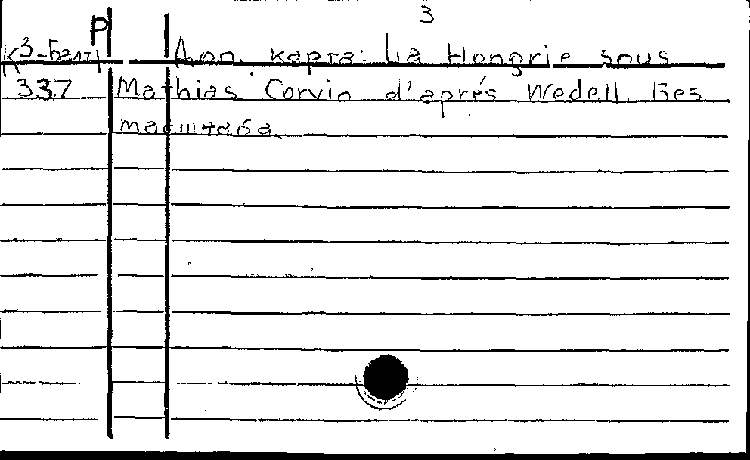 3
Р
К3-Балт
337
Доп. карта: La Hongrie sous
Mathias Corvin d'aprés Wedell. Без
масштаба.